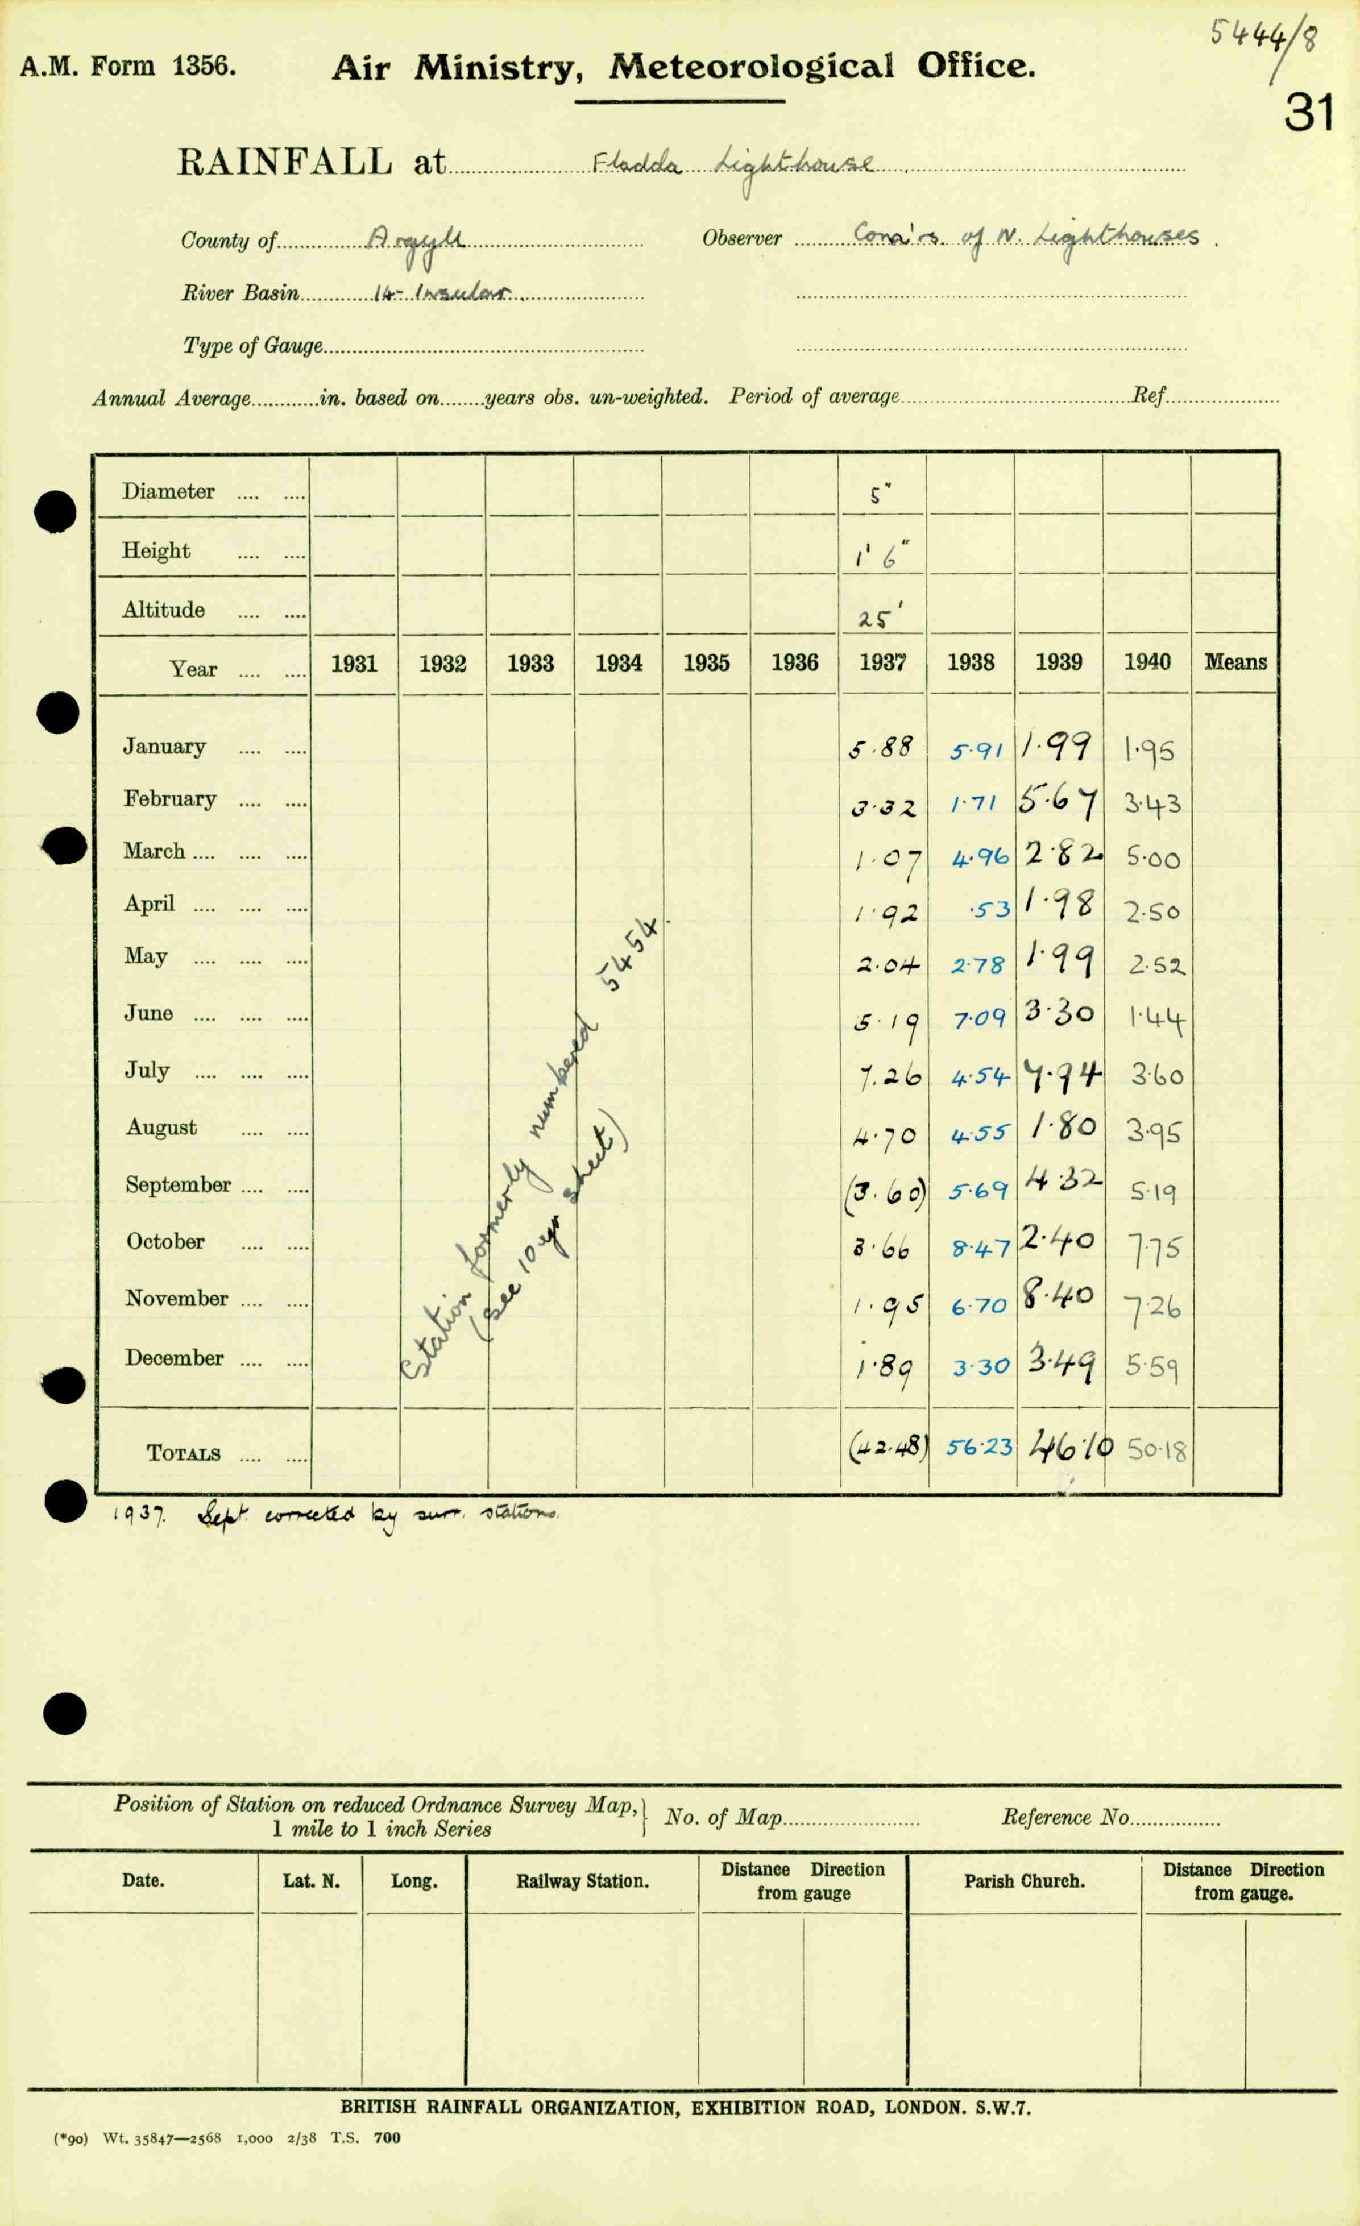 5444/8
A.M. Form 1356. Air Ministry, Meteorological Office.
31
RAINFALL at Fladda Lighthouse
County of Argyll Observer Com'rs. of N. Lighthouses.
River Basin 14 - Insular.
Type of Gauge
Annual Average in. based on years obs. un-weighted. Period of average Ref.
Diameter 5"
Height 1' 6"
Altitude 25'
Year 1931 1932 1933 1934 1935 1936 1937 1938 1939 1940 Means
January 5.88 5.91 1.99 1.95
February 3.32 1.71 5.67 3.43
March 1.07 4.96 2.82 5.00
April 1.92 .53 1.98 2.50
May 2.04 2.78 1.99 2.52
June 5.19 7.09 3.30 1.44
July 7.26 4.54 7.94 3.60
August 4.70 4.55 1.80 3.95
September (3.60) 5.69 4.32 5.19
October 3.66 8.47 2.40 7.75
November 1.95 6.70 8.40 7.26
December 1.89 3.30 3.49 5.59
TOTALS (42.48) 56.23 46.10 50.18
Station formerly numbered 5454.
(see 10 yr sheet)
1937. Sept. corrected by surr. stations.
Position of Station on reduced Ordnance Survey Map, 1 mile to 1 inch Series } No. of Map Reference No.
Date. Lat. N. Long. Railway Station. Distance Direction from gauge Parish Church. Distance Direction from gauge.
BRITISH RAINFALL ORGANIZATION, EXHIBITION ROAD, LONDON. S.W.7.
(*90) Wt. 35847—2568 1,000 2/38 T.S. 700